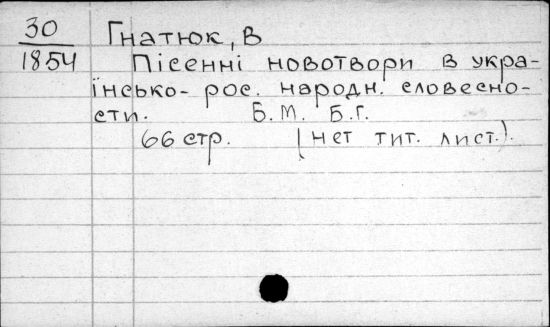 30
1854
Гнатюк, В
Пісенні новотвори в укра-
їнсько-рос. народн. словесно-
сти. Б.М. Б.Г.
66 стр. (нет тит. лист.).